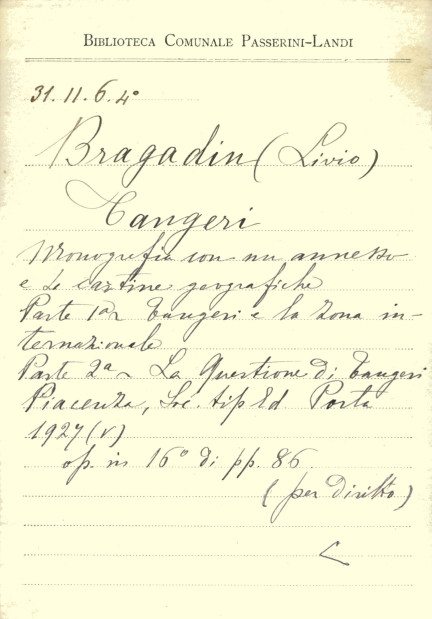 BIBLIOTECA COMUNALE PASSERINI-LANDI
31. II. 6. 4°
Bragadin (Livio)
Tangeri
Monografia con un annesso
e 4 cartine geografiche
Parte 1a Tangeri e la zona in-
ternazionale
Parte 2a - La Questione di Tangeri
Piacenza, Soc. tip Ed Porta
1927 (V)
op. in 16° di pp. 86
(per diritto)